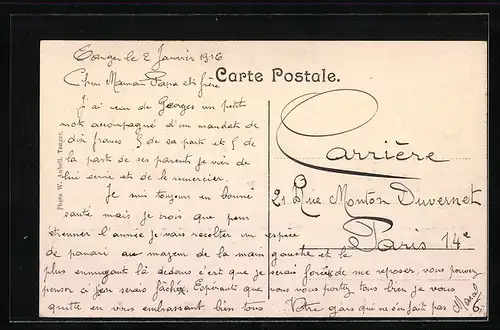 Tanger le 2 Janvier 1916
Carte Postale.
Chers Maman Papa et frère
J'ai reçu de Georges un petit
mot accompagné d'un mandat de
dix francs 5 de sa part et 5 de
la part de ses parents je vais de
lui écrire et de le remercier.
Je suis toujours en bonne
santé mais je crois que pour
étrenner l'année je vais récolter un espèce
de panari au majeur de la main gauche et le
plus ennuyant là dedans c'est que je serai forcé de me reposer, vous pouvez
penser si j'en serais fâché. Espérant que vous vous portez tous bien je vous
quitte en vous embrassant bien tous Votre gars qui ne s'en fait pas
Marcel
Carrière
21 Rue Mouton Duvernet
Paris 14e
Photo W. Tanger.